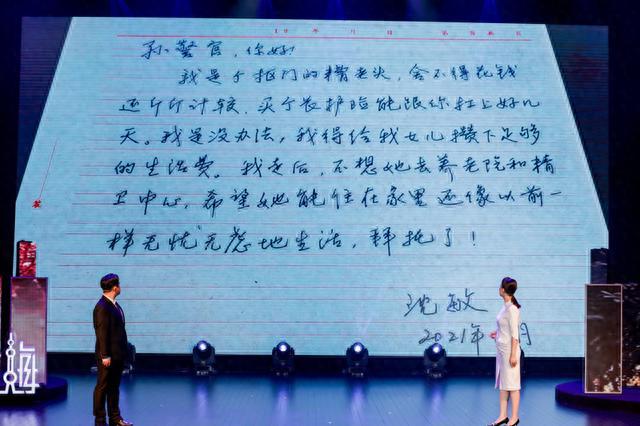 孙警官，你好！
我是个抠门的糟老头，舍不得花钱
还斤斤计较，买个长护险能跟你扛上好几
天。我是没办法，我得给我女儿攒下足够
的生活费。我走后，不想她去养老院和精
卫中心，希望她能住在家里还像以前一
样无忧无虑地生活，拜托了！
沈敏
2021年 月